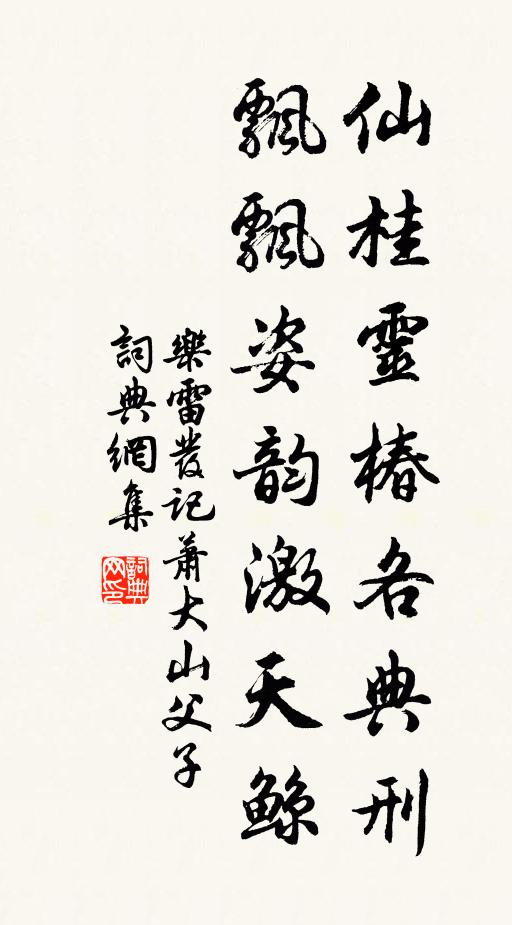 仙桂靈椿各典刑
飄飄姿韵激天鯨
樂雷發記蕭大山父子
詞典網集
詞典网印